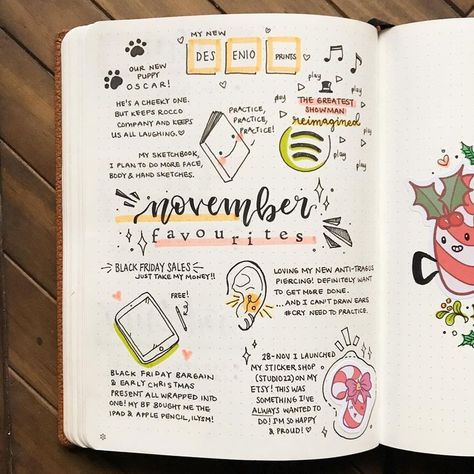 MY NEW
DESENIO PRINTS
OUR NEW
PUPPY
OSCAR!
HE'S A CHEEKY ONE.
BUT KEEPS ROCCO
COMPANY AND KEEPS
US ALL LAUGHING.
PRACTICE,
PRACTICE,
PRACTICE!
play
play
play
play
THE GREATEST
SHOWMAN
reimagined
MY SKETCHBOOK,
I PLAN TO DO MORE FACE,
BODY & HAND SKETCHES.
november
favourites
BLACK FRIDAY SALES
JUST TAKE MY MONEY!!
FREE!
LOVING MY NEW ANTI-TRAGUS
PIERCING! DEFINITELY WANT
TO GET MORE DONE.
...AND I CAN'T DRAW EARS
#CRY NEED TO PRACTICE.
BLACK FRIDAY BARGAIN
& EARLY CHRISTMAS
PRESENT ALL WRAPPED INTO
ONE! MY BF BOUGHT ME THE
IPAD & APPLE PENCIL, ILYSM!
28-NOV I LAUNCHED
MY STICKER SHOP
(STUDIO22) ON MY
ETSY! THIS WAS
SOMETHING I'VE
ALWAYS WANTED TO
DO! I'M SO HAPPY
& PROUD!